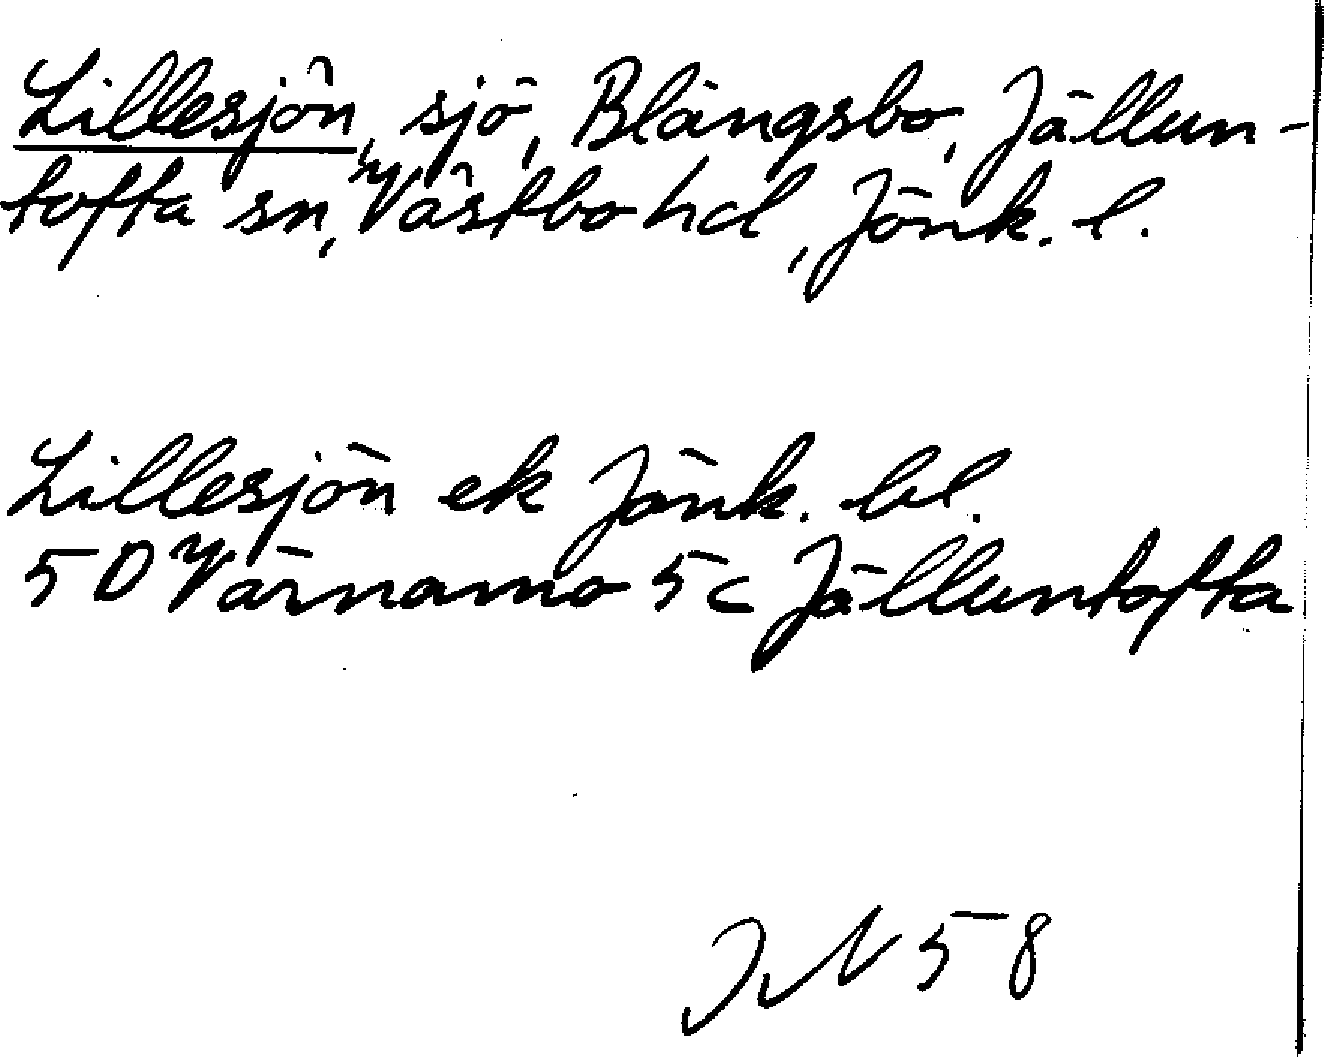 Lillesjön, sjö, Blängsbo, Jällun-
tofta sn, Västbo hd, Jönk. l.
Lillesjön ek Jönk. bl.
5D Värnamo 5c Jälluntofta
58